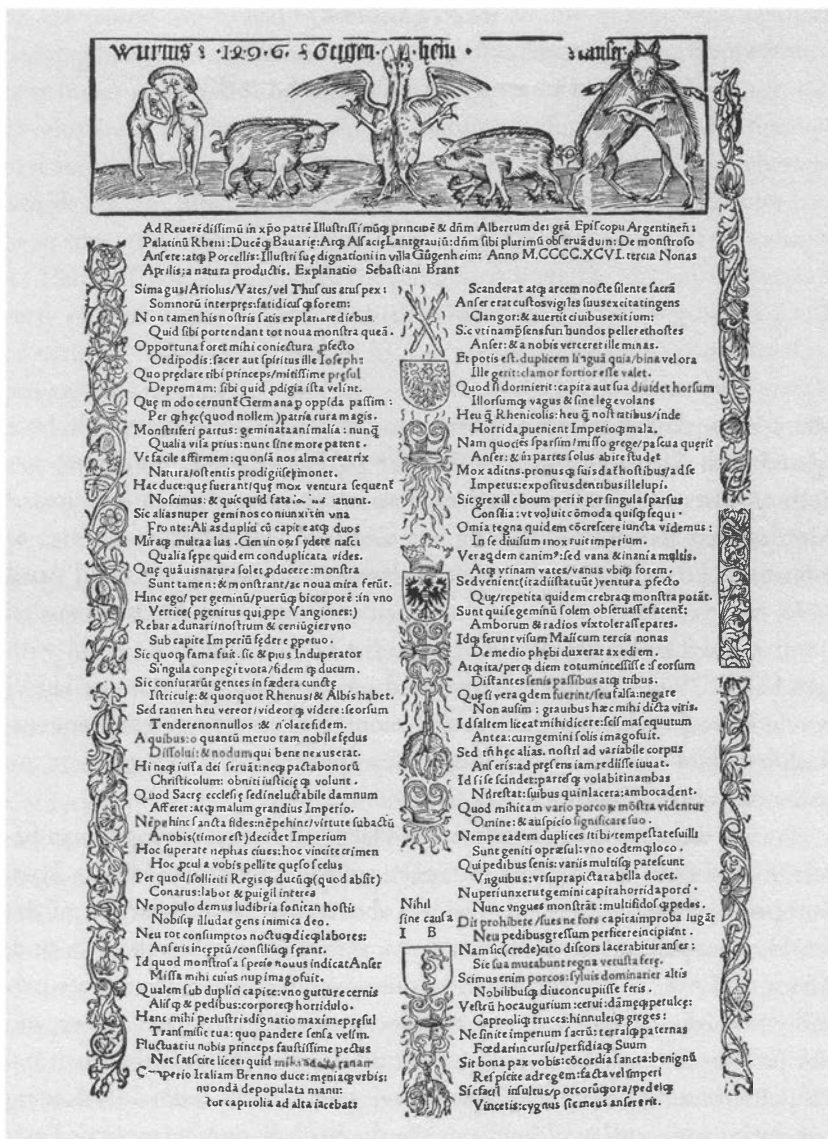 wurms · 1496 · Gugen · heim · anser
Ad Reuerēdissimū in xp̄o patrē Illustrissimūq̄ principē & dn̄m Albertum dei grā Episcopū Argentineñ:
Palatinū Rheni: Ducēq̄ Bauarię: Atq̄ Alsacię Lantgrauiū: dn̄m sibi plurimū obseruādum: De monstroso
Ansere: atq̄ Porcellis: Illustri suę dignationi in villa Gůgenheim: Anno M.CCCC.XCVI. tercia Nonas
Aprilis: a natura productis. Explanatio Sebastiani Brant
Si magus/Ariolus/Vates/vel Thuscus aruspex:
Somnorū interpres: fatidicusq̄ forem:
Non tamen his nostris satis explanare diebus
Quid sibi portendant tot noua monstra queā.
Opportuna foret mihi coniectura ꝓfecto
Oedipodis: sacer aut spiritus ille Ioseph:
Quo pręclare tibi princeps/mitissime pręsul
Depromam: sibi quid ꝓdigia ista velint.
Quę modo cernunt Germana ꝑ oppida passim:
Per q̄ hęc (quod nollem) patria rura magis.
Monstriferi partus: geminata animalia: nunq̄
Qualia visa prius: nunc sine more patent.
Vt facile affirmem: quonsā nos alma creatrix
Natura/ostentis prodigiisq̄ monet.
Hac duce: quę fuerant/quę mox ventura sequent
Noscimus: & quicquid fata
Sic alias nuper geminos coniunxit in vna
Fronte: Alias duplici cū capite atq̄ duos
Miraq̄ multa alias. Gemin sydere nasci
Qualia sępe quidem conduplicata vides.
Quę quāuis natura solet ꝓducere: monstra
Sunt tamen: & monstrant/ac noua mira ferūt.
Hinc ego/per geminū/puerūq̄ bicorporē: in vno
Vertice (ꝓgenitus quippe Vangiones:)
Rebar adunari/nostrum & ceruiger vno
Sub capite Imperiū fędere ꝑpetuo.
Sic quoq̄ fama fuit. sic & pius Induperator
Singula conpegit vota/fidem q̄ ducum.
Sic coniurarūt gentes in fædera cunctę
Istriculę: & quotquot Rhenus/& Albis habet.
Sed tamen heu vereor/videor q̄ videre: seorsum
Tendere nonnullos: & violare fidem.
A quibus: o quantū metuo tam nobile fędus
Dissolui: & nodum qui bene nexus erat.
Hi neq̄ iussa dei seruāt: neq̄ pacta bonorū
Christicolum: obniti iusticięq̄ volunt.
Quod Sacrę ecclesię sedi ineluctabile damnum
Afferet: atq̄ malum grandius Imperio.
Nēpe hinc sancta fides: nēpe hinc/virtute subactū
A nobis (timor est) decidet Imperium
Hoc superate nephas ciues: hoc vincite crimen
Hoc ꝓcul a vobis pellite quęso scelus
Per quod/solliciti Regisq̄ ducūq̄ (quod absit)
Conatus: labor & puigil interea
Ne populo demus ludibria fors an hosti:
Nobisq̄ illudat gens inimica deo.
Neu tot consumptos noctuq̄ dieq̄ labores:
Anseris inceptū/consiliūq̄ ferant.
Id quod monstrosa specie nouus indicat Anser
Missa mihi cuius nup imago fuit.
Qualem sub duplici capite: vno gutture cernis
Alisq̄ & pedibus: corporeq̄ horridulo.
Hanc mihi perlustris dignatio maxime pręsul
Transmisit tua: quo pandere sensa velim.
Fluctuatiu nobis princeps faustissime pectus
Nec sat scire licet: quid mihi
mperio Italiam Brenno duce: męniaq̄ vrbis:
nuondā depopulata manu:
tor capitolia ad alta iacebats
Scanderat atq̄ arcem nocte silente sacrā
Anser erat custos vigiles suus excitat ingens
Clangor: & auertit ciuibus exitium:
Sic vtinam p̄sens furibundos pelleret hostes
Anser: & a nobis verteret ille minas.
Et potis est. duplicem linguā quia/bina vel ora
Ille gerit: clamor fortior esse valet.
Quod si dormierit: capita aut sua diuidet horsum
Illorsumq̄ vagus & sine lege volans
Heu q̄ Rhenicolis: heu q̄ nostratibus/inde
Horrida ꝓuenient Imperioq̄ mala.
Nam quocies sparsim/misso grege/pascua querit
Anser: & in partes solus abire studet
Mox aditus: pronusq̄ suis dat hostibus/ad se
Impetus: expositus dentibus ille lupi.
Sic grex ille boum periit per singula sparsus
Consilia: vt voluit cōmoda quisq̄ sequi.
Omnia regna quidem cōcrescere iuncta videmus:
In se diuisum mox ruit imperium.
Vera q̄dem canim⁹: sed vana & inania multis.
Atq̄ vtinam vates/vanus vbiq̄ forem.
Sed venient (ita dii statuūt) ventura ꝓfecto
Quę/repetita quidem crebraq̄ monstra notāt.
Sunt qui se geminū solem obseruasse fatent:
Amborum & radios vix tolerasse pares.
Idq̄ ferunt visum Maii cum tercia nonas
De medio phębi duxerat axe diem.
Atq̄ ita/perq̄ diem totum incessisse: seorsum
Distantes senis passibus atq̄ tribus.
Quę si vera q̄dem fuerint/seu falsa: negare
Non ausim: grauibus hęc mihi dicta viris.
Id saltem liceat mihi dicere: seis masequutum
Antea: cum gemini solis imago fuit.
Sed tn̄ hęc alias. nostri ad variabile corpus
Anseris: ad pręsens iam rediisse iuuat.
Id si se scindet: partesq̄ volabit in ambas
Nō restat: suibus quin lacera: ambo cadent.
Quod mihi tam vario porcoq̄ mōstra videntur
Omine: & auspicio significare suo.
Nempe eadem duplices istibi tempestate suilli
Sunt geniti o pręsul: vno eodemq̄ loco.
Qui pedibus senis: variis multisq̄ patescunt
Vnguibus: vt supra picta tabella docet.
Nuper iunxerut gemini capita horrida porci
Nunc vngues monstrāt: multifidosq̄ pedes.
Dii prohibete/sues ne fors capita improba iugāt
Neu pedibus gressum perficere incipiant.
Nam sic (credo) ato discors lacerabitur anser:
Sic sua mutabunt regna vetusta ferę.
Scimus enim porcos: syluis dominarier altis
Nobilibusq̄ diu concupiisse feris.
Vestrū hoc augurium: cerui: dāmęq̄ petulcę:
Capreoliq̄ truces: hinnuleiq̄ greges:
Ne sinite imperium sacrū: terrasq̄ paternas
Fœdari incursu/perfidiaq̄ Suum
Sit bona pax vobis: cōcordia sancta: benignū
Respicite ad regem: facta vel imperi
Si facitis insultus/porcorūq̄ ora/pedesq̄
Vincetis: cygnus sic meus anser erit.
Nihil
sine causa
I B